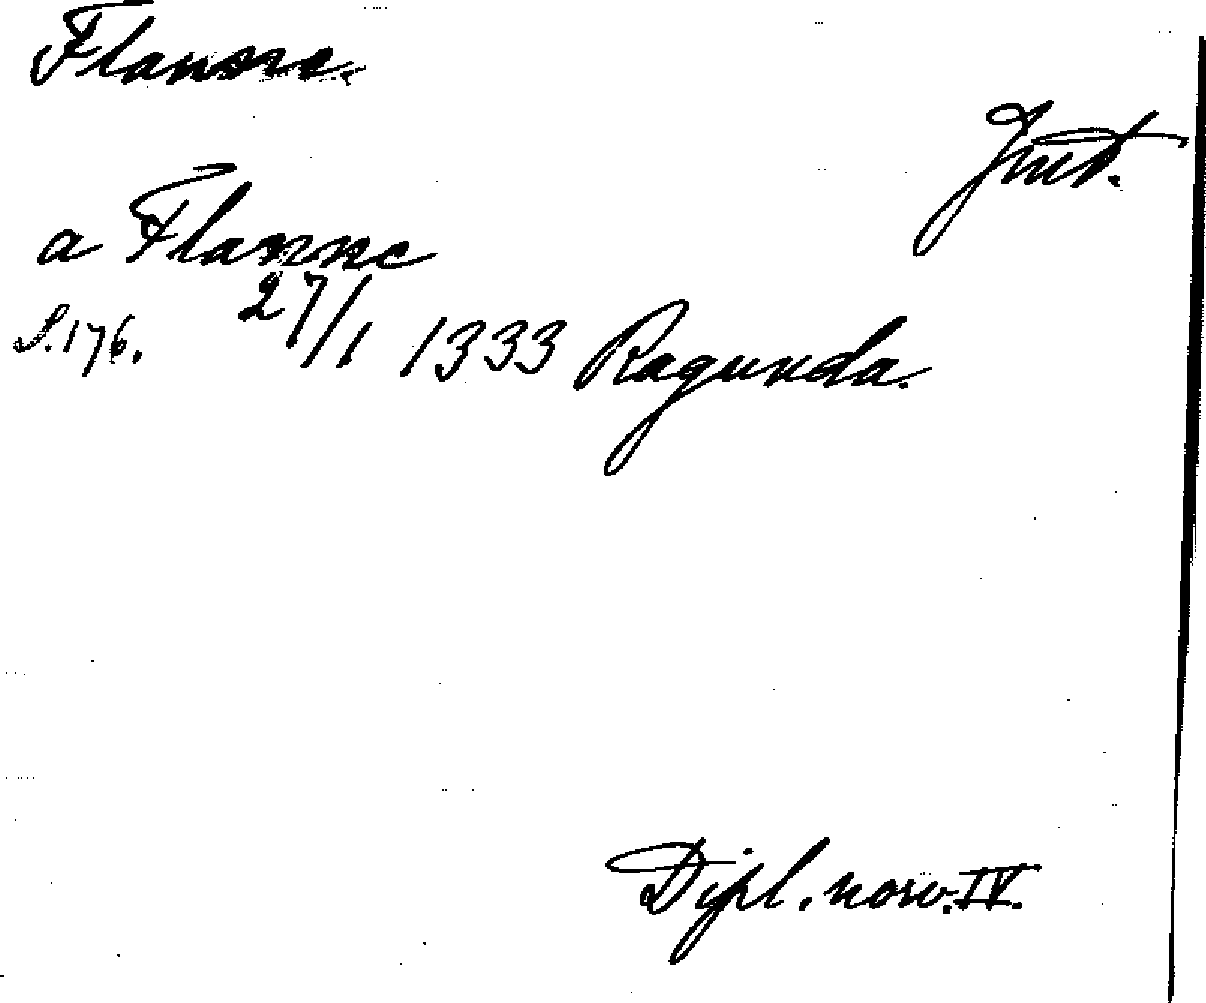 Flannc.
Jmt.
a Flannc
S. 176. 27/1 1333 Ragunda.
Dipl. norv. IV.